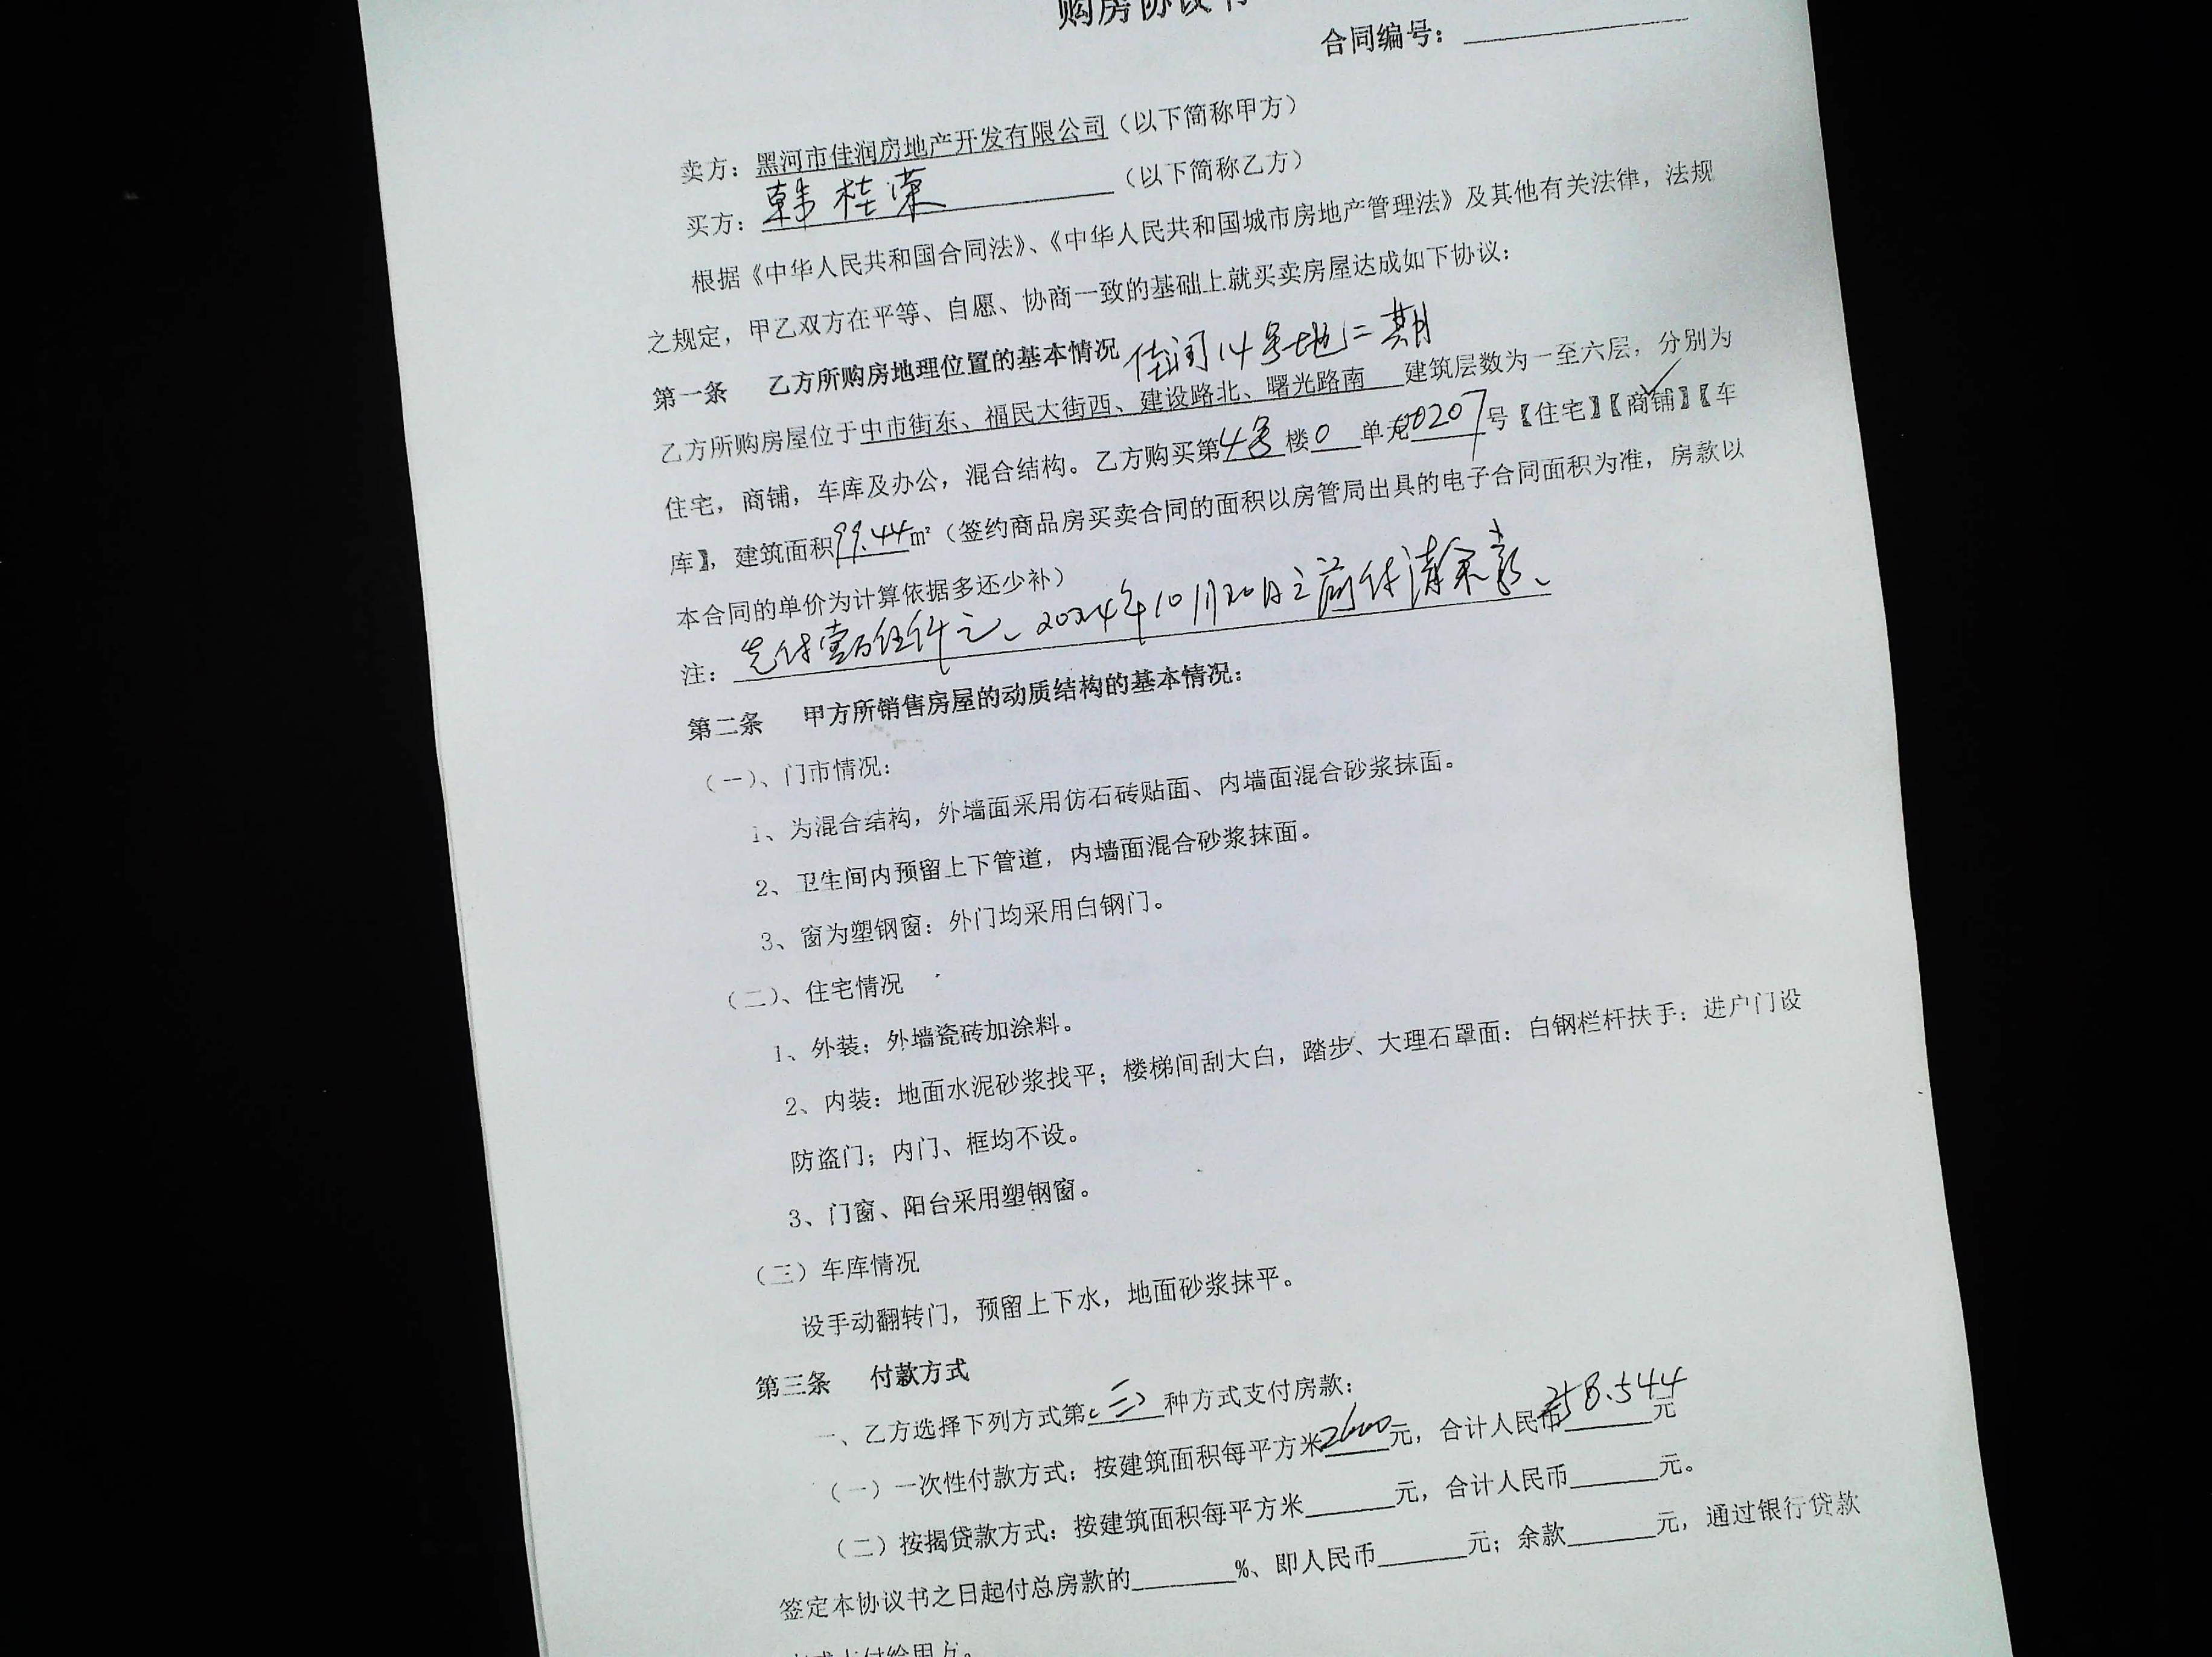 购房协议书
合同编号：
卖方：黑河市佳润房地产开发有限公司（以下简称甲方）
买方：韩桂荣（以下简称乙方）
根据《中华人民共和国合同法》、《中华人民共和国城市房地产管理法》及其他有关法律，法规
之规定，甲乙双方在平等、自愿、协商一致的基础上就买卖房屋达成如下协议：
第一条 乙方所购房地理位置的基本情况 佳润14号地二期
乙方所购房屋位于中市街东、福民大街西、建设路北、曙光路南 建筑层数为一至六层，分别为
住宅，商铺，车库及办公，混合结构。乙方购买第4号楼0单元00207号【住宅】【商铺】【车
库】，建筑面积99.44m²（签约商品房买卖合同的面积以房管局出具的电子合同面积为准，房款以
本合同的单价为计算依据多还少补）
注：先付壹万伍仟元、2024年10月20日之前付清余款、
第二条 甲方所销售房屋的动质结构的基本情况：
（一）、门市情况：
1、为混合结构，外墙面采用仿石砖贴面、内墙面混合砂浆抹面。
2、卫生间内预留上下管道，内墙面混合砂浆抹面。
3、窗为塑钢窗：外门均采用白钢门。
（二）、住宅情况
1、外装：外墙瓷砖加涂料。
2、内装：地面水泥砂浆找平；楼梯间刮大白，踏步、大理石罩面：白钢栏杆扶手：进户门设
防盗门；内门、框均不设。
3、门窗、阳台采用塑钢窗。
（三）车库情况
设手动翻转门，预留上下水，地面砂浆抹平。
第三条 付款方式
一、乙方选择下列方式第（三）种方式支付房款：
（一）一次性付款方式：按建筑面积每平方米2600元，合计人民币258.544元
（二）按揭贷款方式：按建筑面积每平方米______元，合计人民币______元。
签定本协议书之日起付总房款的______%、即人民币______元；余款______元，通过银行贷款
方式支付给甲方。